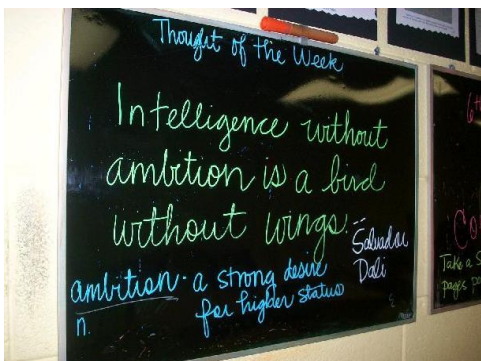 Thought of the Week
Intelligence without
ambition is a bird
without wings. --
Salvador
Dali
ambition - a strong desire
n. for higher status
6th
Take a
pages